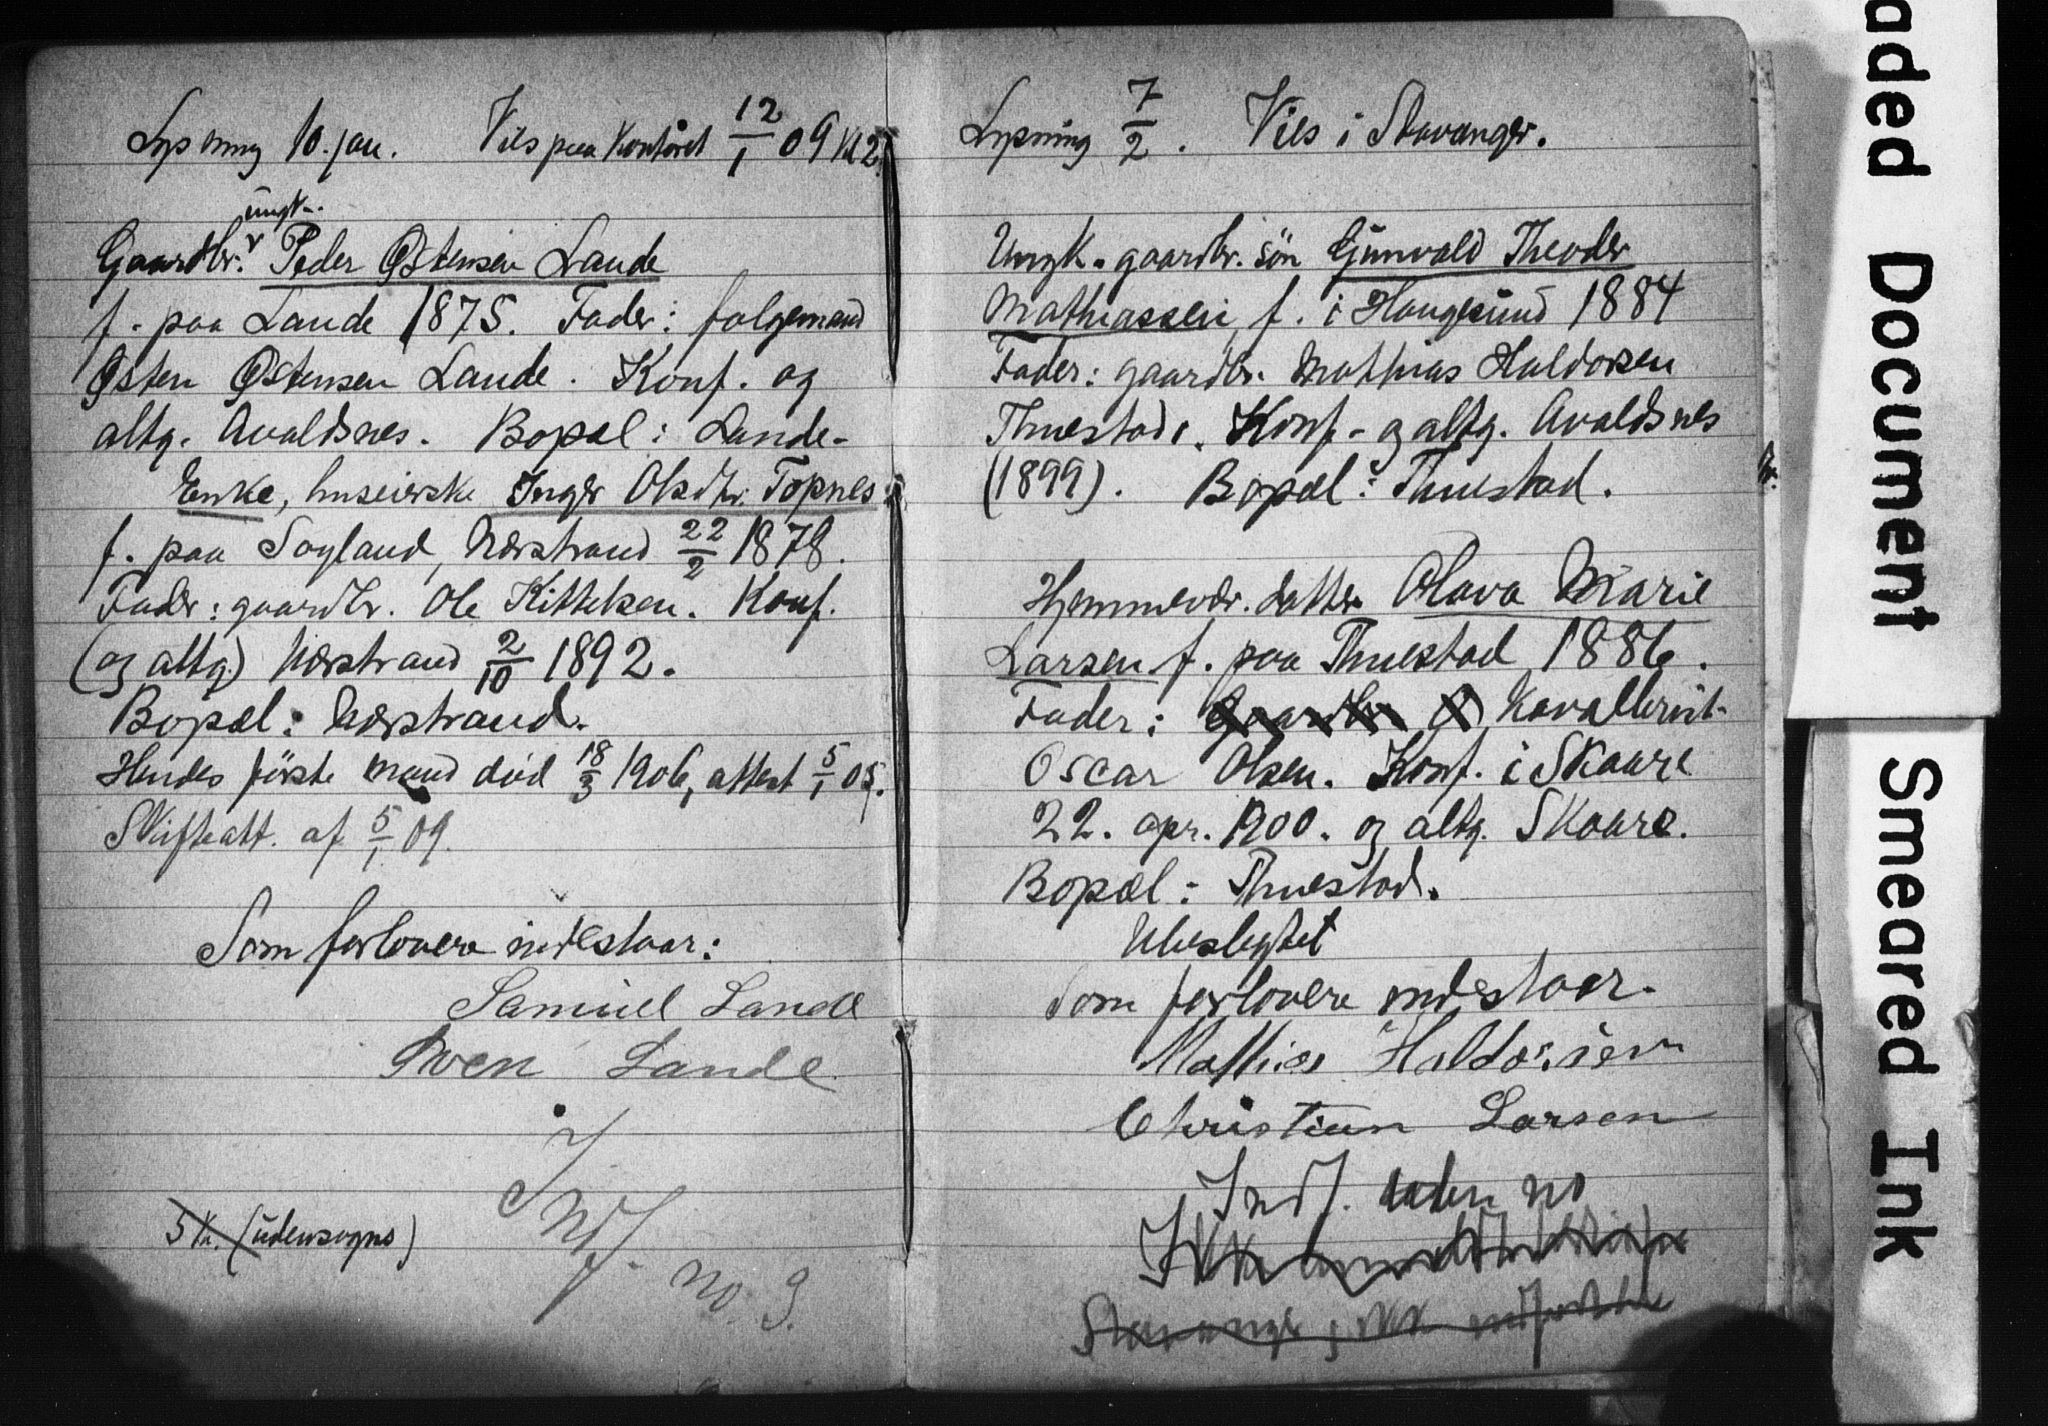 Lysning 10. jan. Vies paa Kontoret 12/1 09 Kl 2.
ungk.
Gaardbr. v Peder Østensen Lande
f. paa Lande 1875. Fader: folgemand
Østen Østensen Lande. Konf. og
altg. Avaldsnes. Bopæl: Lande.
Enke, huseierske Inger Olsdtr. Topnes
f. paa Sogland, Nærstrand 22/2 1878.
Fader: gaardbr. Ole Kittelsen. Konf.
(og altg.) Nærstrand 2/10 1892.
Bopæl: Nærstrand.
Hendes første mand död 18/3 1906, attest 5/1 09.
Skifteatt. af 5/1 09.
Som forlovere indestaar:
Samuel Lande
Sven Lande
Indf.
no. 9.
5 Kr. (udensogns)
Lysning 7/2. Vies i Stavanger.
Ungk. gaardbr. sön Gunvald Theodor
Mathiassen, f. i Haugesund 1884
Fader: gaardbr. Mathias Haldorsen
Thuestad. Konf. og altg. Avaldsnes
(1899). Bopæl: Thuestad.
Hjemmevær. datter Olava Marie
Larsen f. paa Thuestad 1886.
Fader: Gaardbr. O Kavallerist
Oscar Olsen. Konf. i Skaare
22. apr. 1900. og altg. Skaare.
Bopæl: Thuestad.
Ubeslegtet
Som forlovere indestaar.
Mathias Haldorsen
Christian Larsen
Indf. uden no
Ikke
Stavanger, ikke indført
aded Document
Smeared Ink